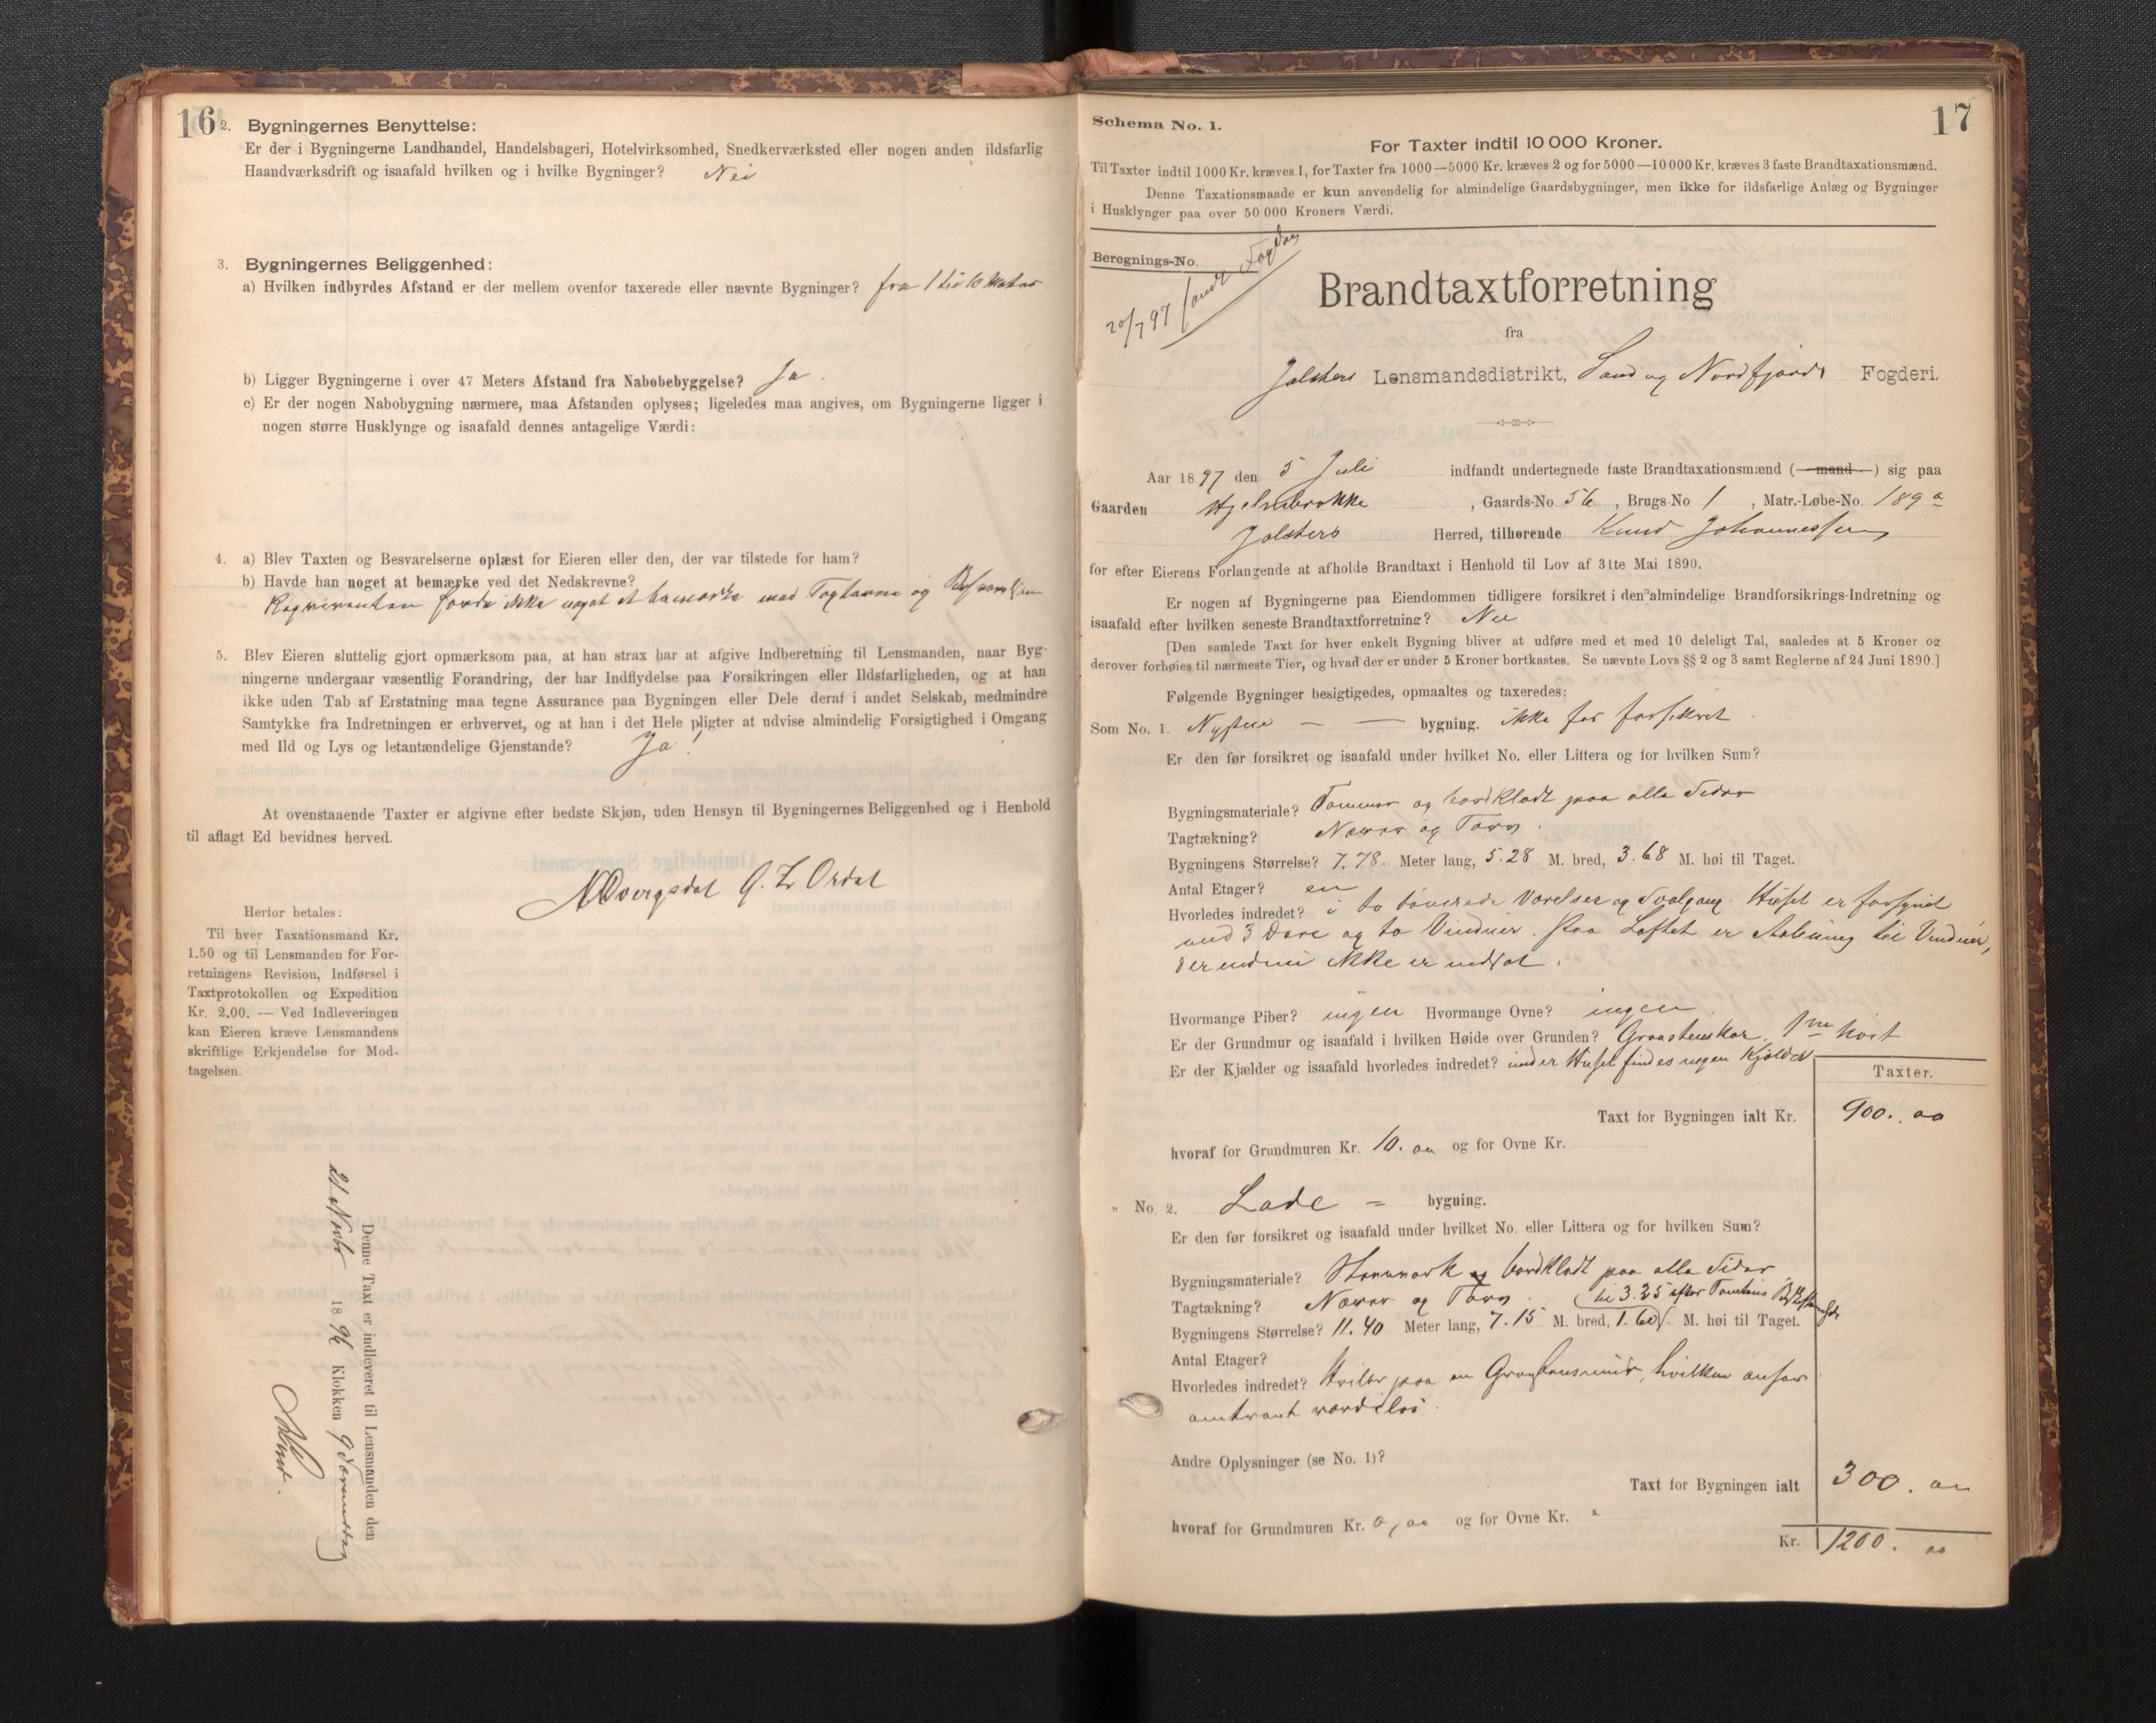 16
2. Bygningernes Benyttelse:
Er der i Bygningerne Landhandel, Handelsbageri, Hotelvirksomhed, Snedkerværksted eller nogen anden ildsfarlig
Haandværksdrift og isaafald hvilken og i hvilke Bygninger? Nei
3. Bygningernes Beliggenhed:
a) Hvilken indbyrdes Afstand er der mellem ovenfor taxerede eller nævnte Bygninger? fra 1 til 10 Meter
b) Ligger Bygningerne i over 47 Meters Afstand fra Nabobebyggelse? Ja.
c) Er der nogen Nabobygning nærmere, maa Afstanden oplyses; ligeledes maa angives, om Bygningerne ligger i
nogen større Husklynge og isaafald dennes antagelige Værdi:
4. a) Blev Taxten og Besvarelserne oplæst for Eieren eller den, der var tilstede for ham?
b) Havde han noget at bemærke ved det Nedskrevne?
Rekvirenten havde ikke noget at bemærke med Taxterne og
5. Blev Eieren sluttelig gjort opmærksom paa, at han strax har at afgive Indberetning til Lensmanden, naar Byg-
ningerne undergaar væsentlig Forandring, der har Indflydelse paa Forsikringen eller Ildsfarligheden, og at han
ikke uden Tab af Erstatning maa tegne Assurance paa Bygningen eller Dele deraf i andet Selskab, medmindre
Samtykke fra Indretningen er erhvervet, og at han i det Hele pligter at udvise almindelig Forsigtighed i Omgang
med Ild og Lys og letantændelige Gjenstande? Ja!
At ovenstaaende Taxter er afgivne efter bedste Skjøn, uden Hensyn til Bygningernes Beliggenhed og i Henhold
til aflagt Ed bevidnes herved.
Ordal
Herfor betales:
Til hver Taxationsmand Kr.
1.50 og til Lensmanden for For-
retningens Revision, Indførsel i
Taxtprotokollen og Expedition
Kr. 2.00. — Ved Indleveringen
kan Eieren kræve Lensmandens
skriftlige Erkjendelse for Mod-
tagelsen.
Denne Taxt er indleveret til Lensmanden den
21 Novbr 1896 Klokken 9
17
Schema No. 1.
For Taxter indtil 10 000 Kroner.
Til Taxter indtil 1000 Kr. kræves 1, for Taxter fra 1000—5000 Kr. kræves 2 og for 5000—10 000 Kr. kræves 3 faste Brandtaxationsmænd.
Denne Taxationsmaade er kun anvendelig for almindelige Gaardsbygninger, men ikke for ildsfarlige Anlæg og Bygninger
i Husklynger paa over 50 000 Kroners Værdi.
Beregnings-No.
20/7 97 sendt Fogden
Brandtaxtforretning
fra
Jølsters Lensmandsdistrikt, Sønd og Nordfjords Fogderi.
Aar 1897 den 5 Juli indfandt undertegnede faste Brandtaxationsmænd (mand) sig paa
Gaarden Hjelmbrekke, Gaards-No. 56, Brugs-No 1, Matr.-Løbe-No. 189 a
Jølsters Herred, tilhørende Knud Johannessen
for efter Eierens Forlangende at afholde Brandtaxt i Henhold til Lov af 31te Mai 1890.
Er nogen af Bygningerne paa Eiendommen tidligere forsikret i den almindelige Brandforsikrings-Indretning og
isaafald efter hvilken seneste Brandtaxtforretning? Nei
[Den samlede Taxt for hver enkelt Bygning bliver at udføre med et med 10 deleligt Tal, saaledes at 5 Kroner og
derover forhøies til nærmeste Tier, og hvad der er under 5 Kroner bortkastes. Se nævnte Lovs §§ 2 og 3 samt Reglerne af 24 Juni 1890.]
Følgende Bygninger besigtigedes, opmaaltes og taxeredes:
Som No. 1. Nystue — — bygning. ikke før forsikret
Er den før forsikret og isaafald under hvilket No. eller Littera og for hvilken Sum?
Bygningsmateriale? Tømmer og bordklædt paa alle Sider
Tagtækning? Næver og Torv.
Bygningens Størrelse? 7.78. Meter lang, 5.28 M. bred, 3.68 M. høi til Taget.
Antal Etager? en
Hvorledes indredet? i to tømrede Værelser og Svalgang. Huset er forsynet
med 3 Døre og to Vinduer. Paa Loftet er Aabning til Vinduer,
der endnu ikke er indsat.
Hvormange Piber? ingen Hvormange Ovne? ingen
Er der Grundmur og isaafald i hvilken Høide over Grunden? Graastensmur, 1 m høit
Er der Kjælder og isaafald hvorledes indredet? under Huset findes ingen Kjælder
Taxter.
Taxt for Bygningen ialt Kr. 900. 00
hvoraf for Grundmuren Kr. 10. 00 og for Ovne Kr.
" No. 2. Lade = bygning.
Er den før forsikret og isaafald under hvilket No. eller Littera og for hvilken Sum?
Bygningsmateriale? Stavværk og bordklædt paa alle Sider
Tagtækning? Næver og Torv. til 3.35 efter
Bygningens Størrelse? 11.40 Meter lang, 7.15 M. bred, 1.60 M. høi til Taget.
Antal Etager?
Hvorledes indredet? Hviler paa en Graastensmur, hvilken ansees
omtrent værdiløs.
Andre Oplysninger (se No. 1)?
Taxt for Bygningen ialt 300. 00
hvoraf for Grundmuren Kr. 0,00 og for Ovne Kr. "
Kr. 1200. 00